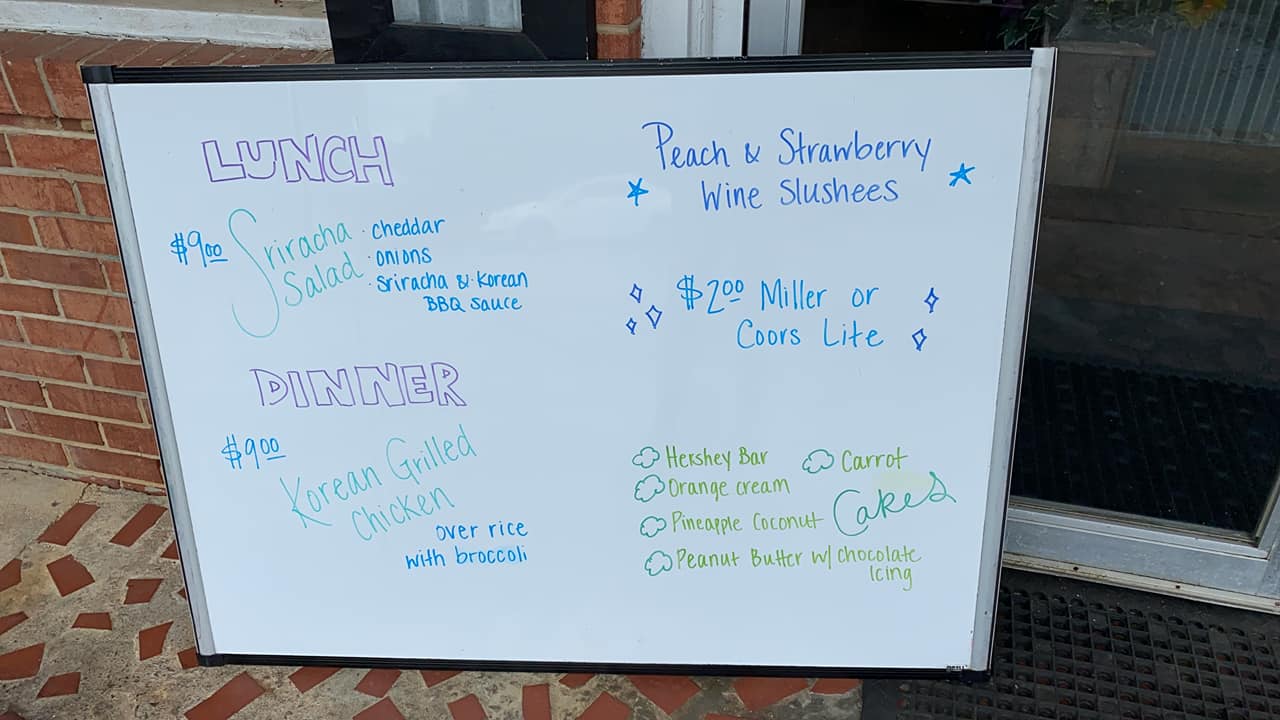 LUNCH
$9.00 Sriracha Salad
· cheddar
· onions
· Sriracha & Korean
BBQ Sauce
DINNER
$9.00
Korean Grilled
Chicken
over rice
with broccoli
Peach & Strawberry
Wine Slushees
$2.00 Miller or
Coors Lite
Hershey Bar
Orange cream
Pineapple Coconut
Peanut Butter w/ chocolate
Icing
Carrot
Cakes